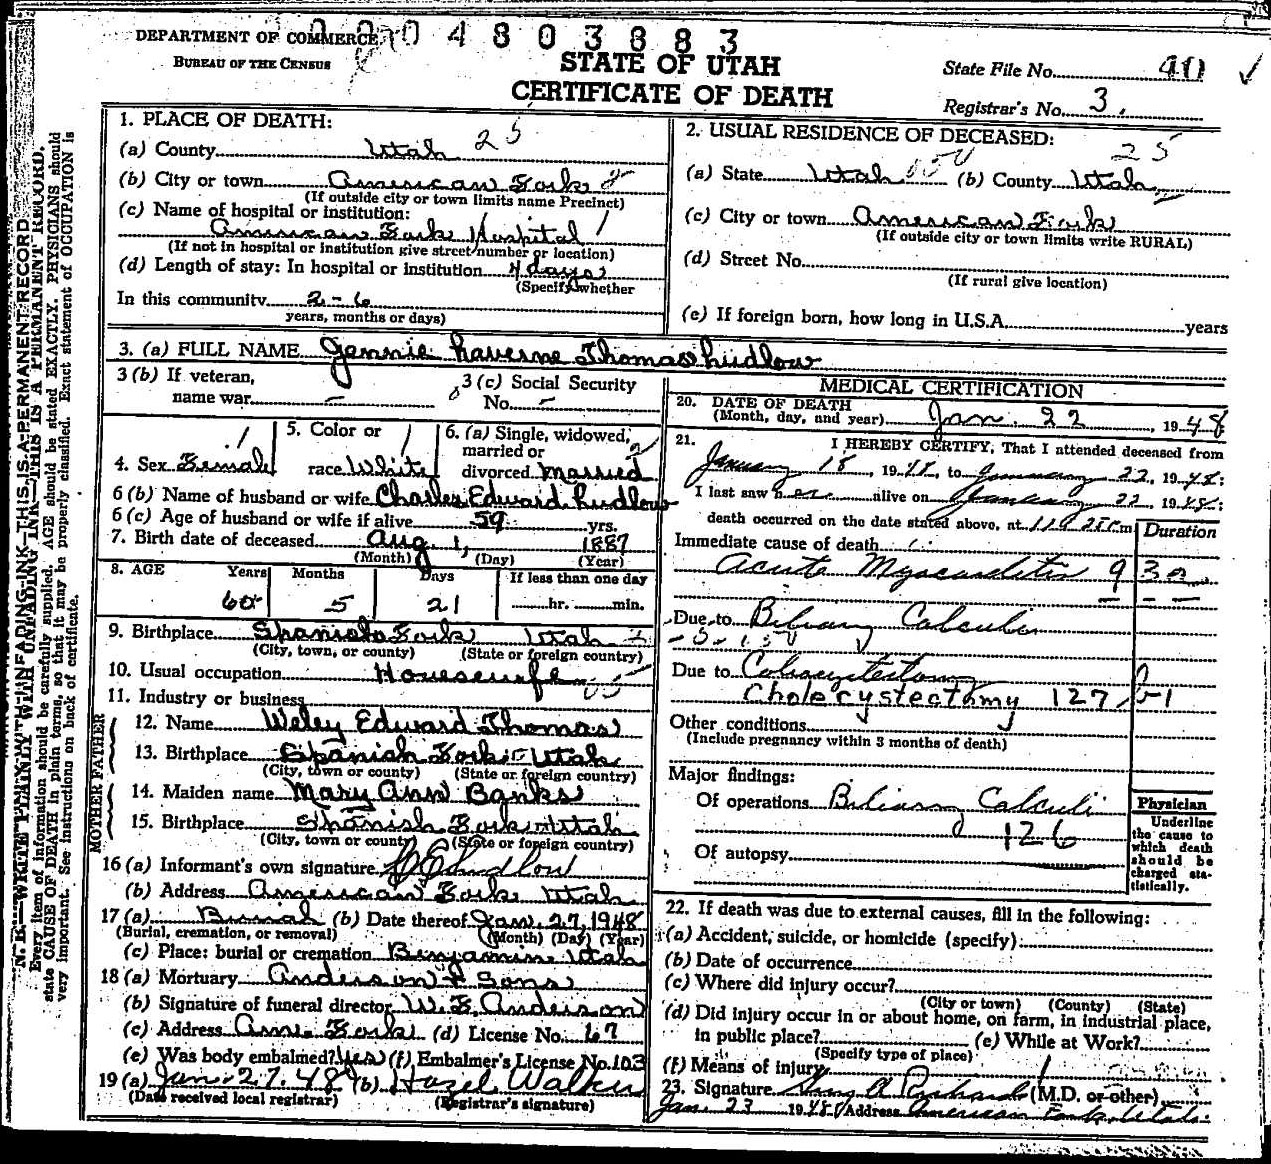 DEPARTMENT OF COMMERCE
BUREAU OF THE CENSUS
04803883
STATE OF UTAH
CERTIFICATE OF DEATH
State File No. 40
Registrar's No. 3.
N. B.—WRITE PLAINLY WITH UNFADING INK—THIS IS A PERMANENT RECORD.
Every item of information should be carefully supplied. AGE should be stated EXACTLY. PHYSICIANS should
state CAUSE OF DEATH in plain terms, so that it may be properly classified. Exact statement of OCCUPATION is
very important. See instructions on back of certificate.
1. PLACE OF DEATH:
(a) County Utah 25
(b) City or town American Fork
(If outside city or town limits name Precinct)
(c) Name of hospital or institution:
American Fork Hospital
(If not in hospital or institution give street number or location)
(d) Length of stay: In hospital or institution 4 days
(Specify whether
In this community 2-6
years, months or days)
2. USUAL RESIDENCE OF DECEASED:
25
(a) State Utah (b) County Utah
(c) City or town American Fork
(If outside city or town limits write RURAL)
(d) Street No.
(If rural give location)
(e) If foreign born, how long in U.S.A. years
3. (a) FULL NAME Jennie Laverne Thomas Ludlow
3 (b) If veteran,
name war —
3 (c) Social Security
No. —
4. Sex Female
5. Color or
race White
6. (a) Single, widowed,
married or
divorced Married
6 (b) Name of husband or wife Charles Edward Ludlow
6 (c) Age of husband or wife if alive 59 yrs.
7. Birth date of deceased Aug. 1, 1887
(Month) (Day) (Year)
8. AGE Years Months Days If less than one day
60 5 21 hr. min.
9. Birthplace Spanish Fork Utah
(City, town, or county) (State or foreign country)
10. Usual occupation Housewife
11. Industry or business
FATHER
12. Name Weley Edward Thomas
13. Birthplace Spanish Fork - Utah
(City, town or county) (State or foreign country)
MOTHER
14. Maiden name Mary Ann Banks
15. Birthplace Spanish Fork Utah
(City, town or county) (State or foreign country)
16 (a) Informant's own signature C E Ludlow
(b) Address American Fork Utah
17 (a) Burial (b) Date thereof Jan. 27, 1948
(Burial, cremation, or removal) (Month) (Day) (Year)
(c) Place: burial or cremation Benjamine Utah
18 (a) Mortuary Anderson & Sons
(b) Signature of funeral director W. E. Anderson
(c) Address Ame. Fork (d) License No. 67
(e) Was body embalmed? Yes (f) Embalmer's License No. 103
19 (a) Jan. 27. 48 (b) Hazel Walker
(Date received local registrar) (Registrar's signature)
MEDICAL CERTIFICATION
20. DATE OF DEATH
(Month, day, and year) Jan. 22, 1948
21. I HEREBY CERTIFY, That I attended deceased from
January 18, 1948, to January 22, 1948;
I last saw her alive on January 22, 1948;
death occurred on the date stated above, at m
Duration
Immediate cause of death
Acute Myocarditis 93
Due to Biliary Calculi
Due to Colecystectomy
Cholecystectomy 127
Other conditions
(Include pregnancy within 3 months of death)
Major findings:
Of operations Biliary Calculi
126
Of autopsy
Physician
Underline
the cause to
which death
should be
charged sta-
tistically.
22. If death was due to external causes, fill in the following:
(a) Accident, suicide, or homicide (specify):
(b) Date of occurrence
(c) Where did injury occur?
(City or town) (County) (State)
(d) Did injury occur in or about home, on farm, in industrial place,
in public place? (e) While at Work?
(Specify type of place)
(f) Means of injury
23. Signature Guy A Richards (M.D. or other)
Jan. 23 1948 Address American Fork, Utah.